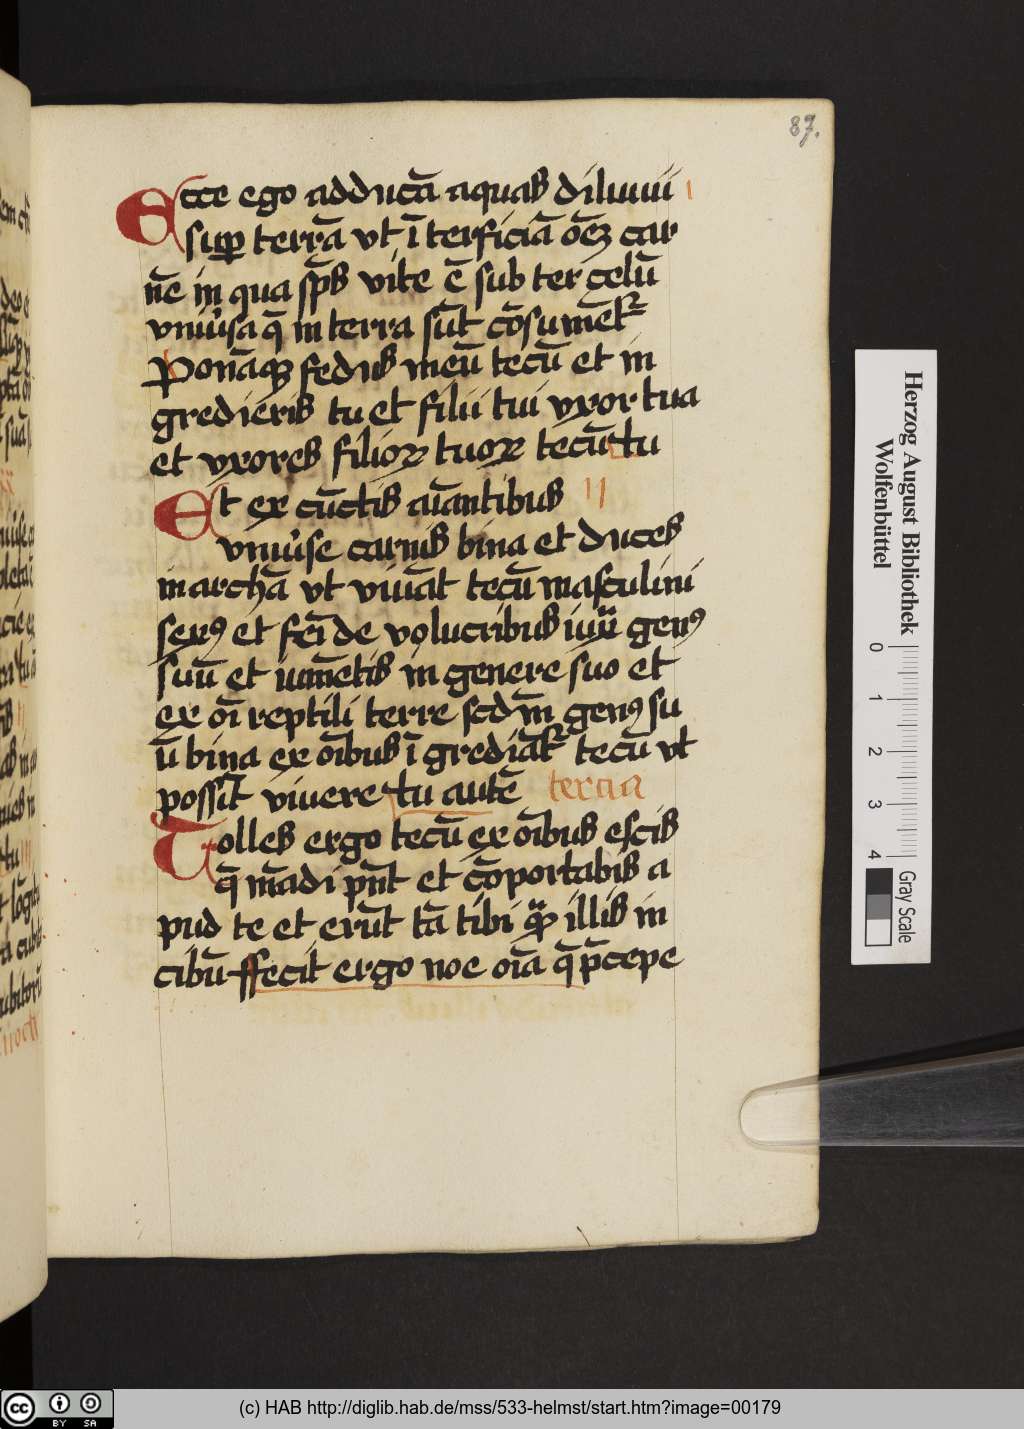 87.
Ecce ego adducā aquas diluuii I
sup̱ terrā vt ītẽrficiā oēꝫ car
nē in qua sp̄s vite ē subter celū
vniu̾sa q̄ in terra sūt cōsumēt᷑
Ponāqꝫ fedus meū tecū et in
gredieris tu et filii tui vxor tua
et vxores filioꝝ tuoꝝ tecū tu
Et ex cūctis aīantibus II
vniu̾se carnis bina et duces
in archā vt viuāt tecū masculini
sexꝰ et feī de volucribus iuxͣ genꝰ
suū et iumētis in genere suo et
ex oī reptili terre scdm̄ genꝰ su
ū bina ex oībus īgrediāt᷑ tecū vt
possīt viuere tu autē tercia
Tolles ergo tecū ex oībus escis
q̄ mādi pn̄t et cōportabis a
pud te et erūt tā tibi qͣꝫ illis in
cibū ffecit ergo noe oīa q̄ p̄cepe
Herzog August Bibliothek
Wolfenbüttel
0 1 2 3 4
Gray Scale
cc BY SA
(c) HAB http://diglib.hab.de/mss/533-helmst/start.htm?image=00179